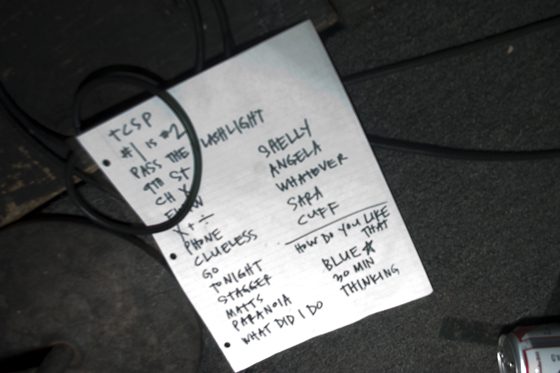 TCSP
#1 IS #2
PASS THE FLASHLIGHT
9TH ST
CH X
X + ÷
PHONE
CLUELESS
GO
TONIGHT
STAGGER
MATTS
PARANOIA
WHAT DID I DO
SHELLY
ANGELA
WHATEVER
SARA
CUFF
HOW DO YOU LIKE
THAT
BLUE ★
30 MIN
THINKING